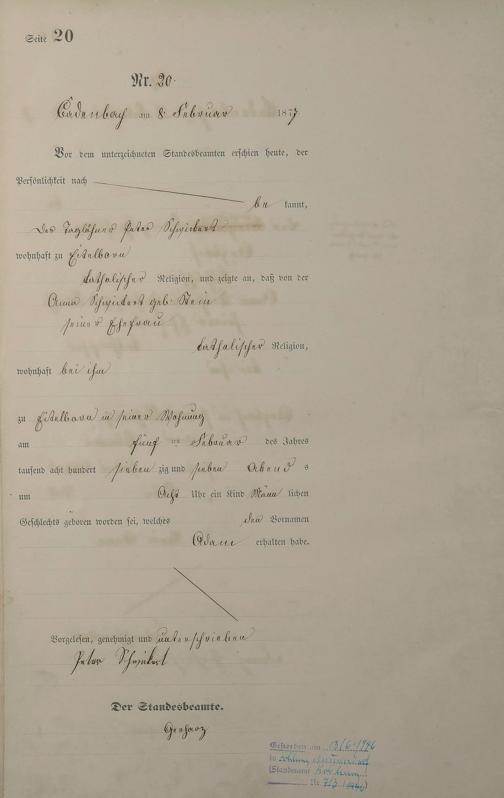 Seite 20
Nr. 20.
Cadenbach am 8. Februar 1877
Vor dem unterzeichneten Standesbeamten erschien heute, der
Persönlichkeit nach
be kannt,
der Taglöhner Peter Schwickert
wohnhaft zu Eitelborn
katholischer Religion, und zeigte an, daß von der
Anna Schwickert geb. Stein
seiner Ehefrau
katholischer Religion,
wohnhaft bei ihm
zu Eitelborn in seiner Wohnung
am fünf ten Februar des Jahres
tausend acht hundert sieben zig und sieben Abend s
um Acht Uhr ein Kind Männ lichen
Geschlechts geboren worden sei, welches den Vornamen
Adam erhalten habe.
Vorgelesen, genehmigt und unterschrieben
Peter Schwickert
Der Standesbeamte.
Gerharz
Gestorben am 13/6. 1946
in
(Standesamt
Nr. 713